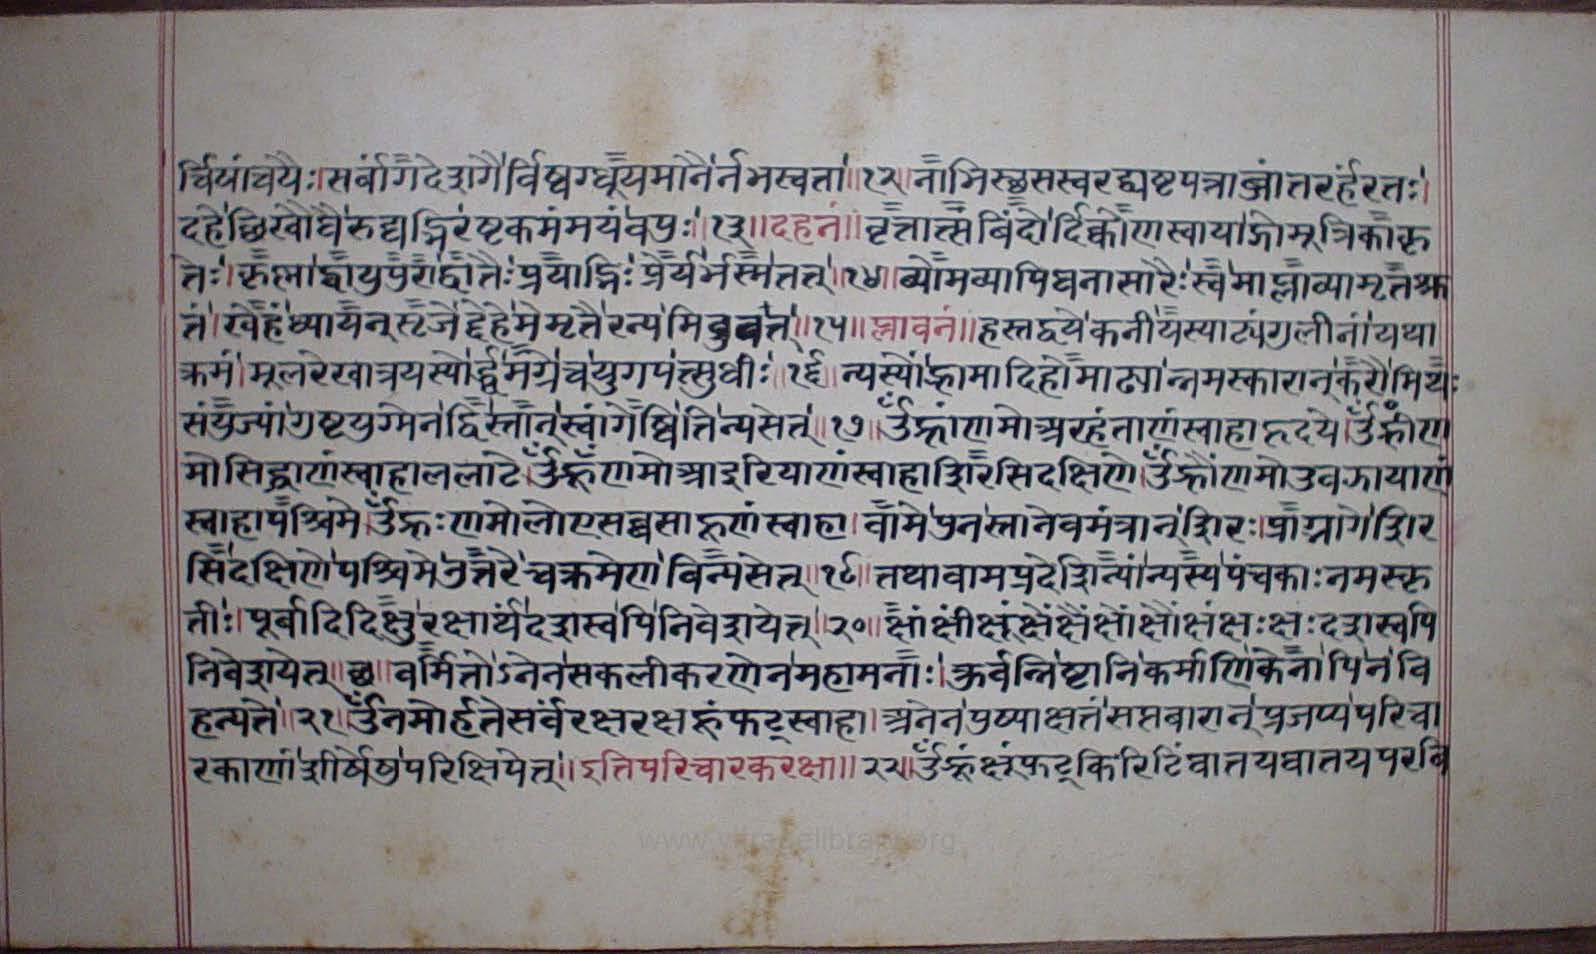 र्चिषांचयैः।सर्वांगदेशगैर्विष्वग्धूयमानैर्नभस्वता॥१२॥नाभिस्छसस्वरद्व्यष्टपत्राब्जांतरर्हंरतः।
दहेछिखौघैरुद्यद्भिरष्टकर्ममयंवपुः॥१३॥दहनं॥वृत्तात्संबिंदोर्दिक्कोणस्वायाज्गोमूत्रिकाकृ
तेः। व्योमव्यापिघनासारैःस्वमाप्लाव्यामृतस्रु
तं। ॥१५॥प्लावनं॥हस्तद्वयेकनीयस्याद्यंगुलीनांयथा
क्रमं।मूलरेखात्रयस्योर्द्ध्वमग्रेचयुगपत्सुधीः॥१६॥न्यस्योंह्रामादिहोमाढ्यान्नमस्कारान्करौमिथः
संयुज्यांगुष्टयुग्मेनद्विस्तान्स्वांगेष्वितिन्यसेत्॥१७॥ॐह्रांणमोअरहंताणंस्वाहाहृदये।ॐह्रींण
मोसिद्धाणंस्वाहाललाटे।ॐह्रूंणमोआइरियाणंस्वाहाशिरसिदक्षिणे।ॐह्रौंणमोउवझायाणं
स्वाहापश्चिमे।ॐह्रःणमोलोएसव्वसाहूणंस्वाहा।वामेपुनस्तानेवमंत्रान्शिरःप्राग्नागेशिर
सिदक्षिणेपश्चिमेउत्तरेचक्रमेणविन्यसेत्॥१८॥तथावामप्रदेशिन्यांन्यस्यपंचकाःनमस्कृ
तीः।पूर्वादिदिक्षुरक्षार्थंदशस्वपिनिवेशयेत्॥२०॥क्षांक्षींक्षूंक्षेंक्षैंक्षोंक्षौंक्षंक्षःक्षःदशस्वपि
निवेशयेत्॥छ॥वर्मितोऽनेनसकलीकरणेनमहामनाः।कुर्वन्निष्टानिकर्माणिकेनापिनवि
हन्यते॥२१॥ॐनमोर्हतेसर्वंरक्षरक्षहूंफट्स्वाहा।अनेनपुष्पाक्षतंसप्तवारान्प्रजप्यपरिचा
रकाणांशीर्षेषुपरिक्षिपेत्॥इतिपरिचारकरक्षा॥२२॥ॐहूंक्षूंफट्किरिटिंघातयघातयपरवि
www.vitragelibrary.org